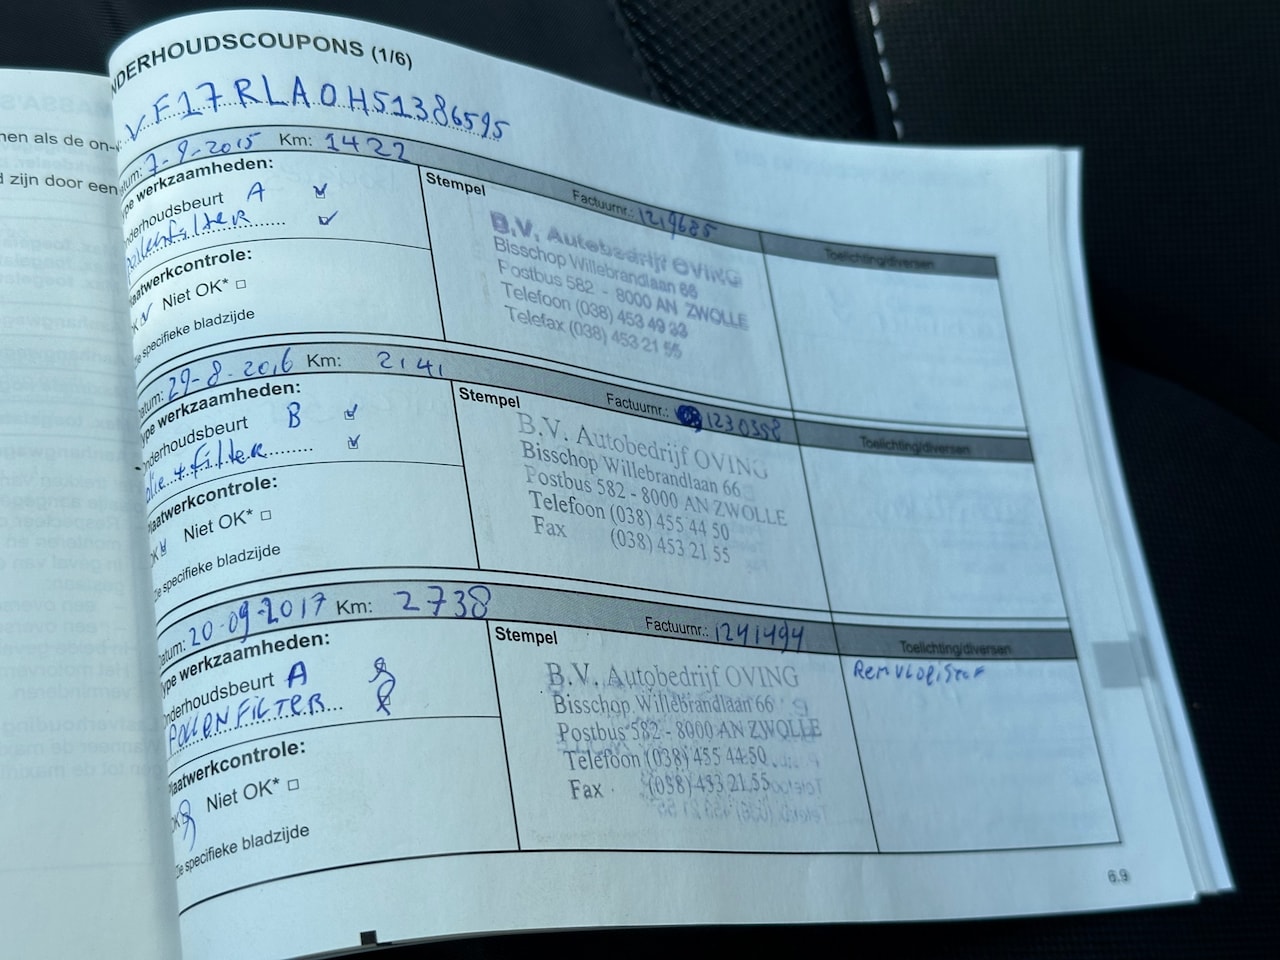 NDERHOUDSCOUPONS (1/6)
VF17RLA0H51386595
nen als de on-
d zijn door een
atum: 7-9-2015 Km: 1422
ype werkzaamheden:
nderhoudsbeurt A
pollenfilter
Stempel
Factuurnr.: 1219685
Toelichting/diversen
B.V. Autobedrijf OVING
Bisschop Willebrandlaan 66
Postbus 582 - 8000 AN ZWOLLE
Telefoon (038) 453 49 33
Telefax (038) 453 21 55
laatwerkcontrole:
K Niet OK*
ie specifieke bladzijde
atum: 29-8-2016 Km: 2141
ype werkzaamheden:
nderhoudsbeurt B
olie + filter
Stempel
Factuurnr.: 1230358
Toelichting/diversen
B.V. Autobedrijf OVING
Bisschop Willebrandlaan 66
Postbus 582 - 8000 AN ZWOLLE
Telefoon (038) 455 44 50
Fax (038) 453 21 55
Plaatwerkcontrole:
OK Niet OK*
Zie specifieke bladzijde
atum: 20-09-2017 Km: 2738
ype werkzaamheden:
Onderhoudsbeurt A
POLLENFILTER
Stempel
Factuurnr.: 1241494
Toelichting/diversen
Remvloeistof
B.V. Autobedrijf OVING
Bisschop Willebrandlaan 66
Postbus 582 - 8000 AN ZWOLLE
Telefoon (038) 455 44 50
Fax (038) 453 21 55
Plaatwerkcontrole:
OK Niet OK*
Zie specifieke bladzijde
6.9